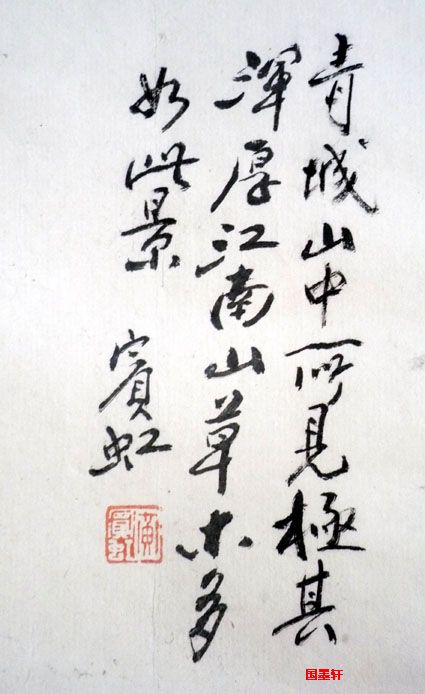 青城山中所見極其
渾厚江南山草木多
如此景
賓虹
黃賓虹
国墨轩